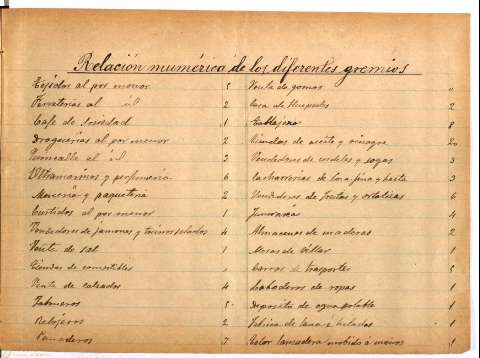 Relación numérica de los diferentes gremios
Tejidos al por menor 5
Ferreterías al id 2
Café de Sociedad 1
Droguerías al por menor 2
al id 3
Ultramarinos y perfumería 6
Mercería y paquetería 2
Curtidos al por menor 1
Vendedores de jamones y tocinos salados 4
Venta de sal 1
Tiendas de comestibles
Venta de calzados 4
Palmeros 5
Relojeros 2
Panaderos 7
Venta de gomas "
Casa de Huespedes 2
8
Tiendas de aceite y vinagre 20
Vendedores de cordeles y sogas 3
Cacharrerías de loza fina y basta 3
Vendedores de frutas y ortalizas 6
4
Almacenes de maderas 2
Mesas de villar 1
Carros de trasportes 5
Labaderos de ropas 1
Deposito de agua potable 1
Fábrica de lana e hilados 1
Telar lanzadera movido a mano 1